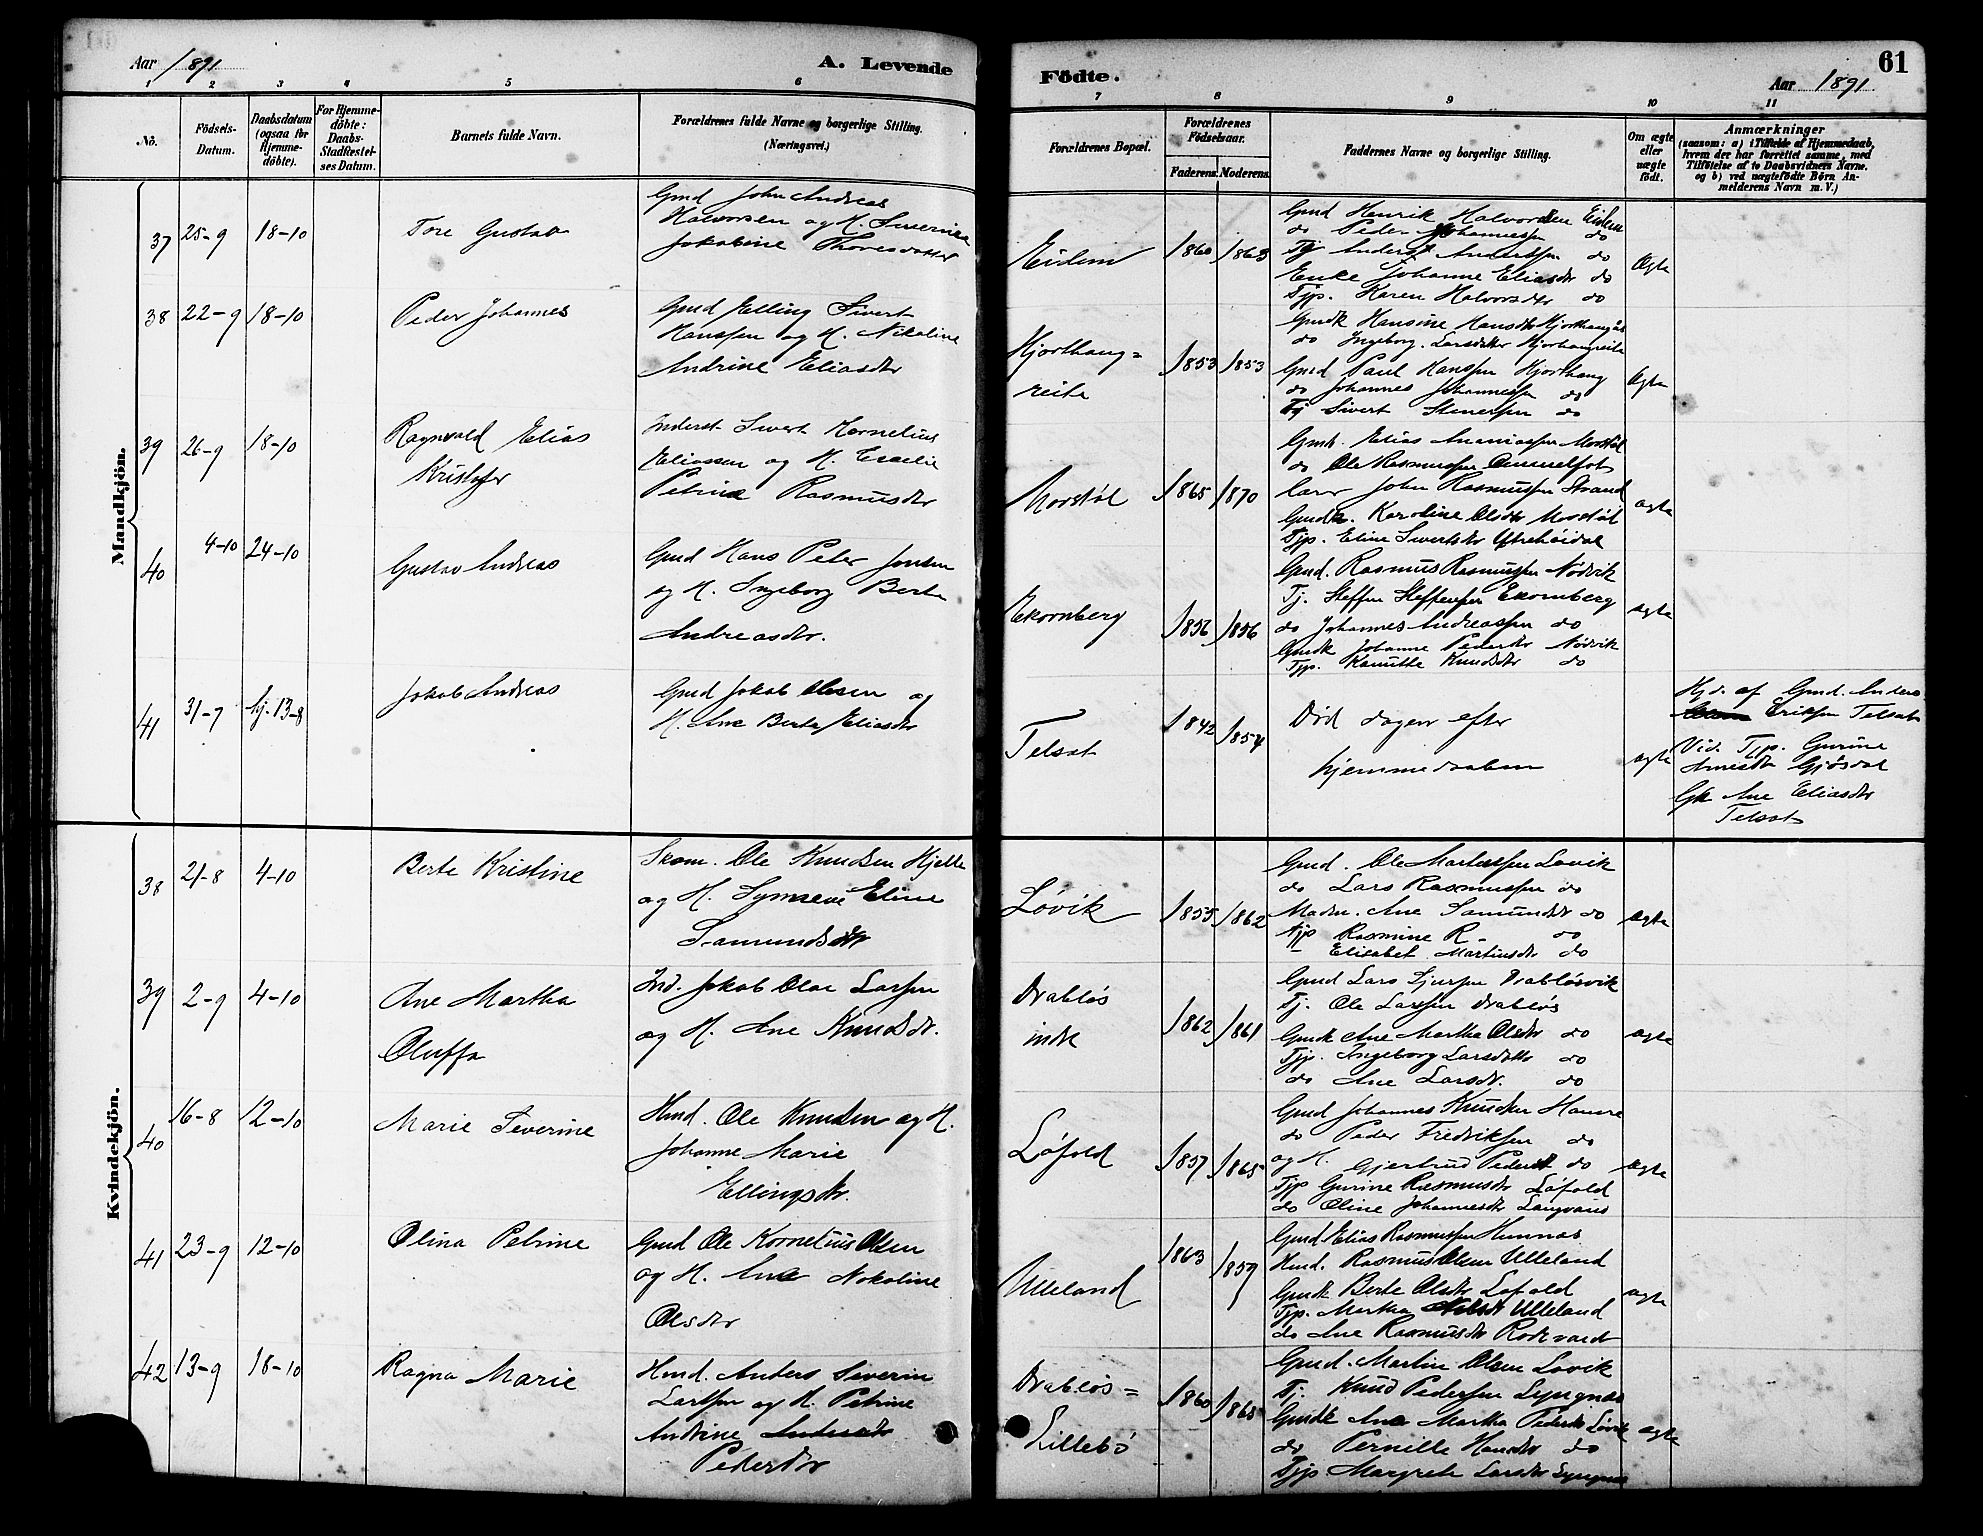 Aar 1891
A. Levende
Födte.
61
Aar 1891
1 2 3 4 5 6 7 8 9 10 11
No.
Födsels-
Datum.
Daabsdatum
(ogsaa for
Hjemme-
döbte).
For Hjemme-
döbte:
Daabs-
Stadfæstel-
ses Datum.
Barnets fulde Navn.
Forældrenes fulde Navne og borgerlige Stilling.
(Næringsvei.)
Forældrenes Bopæl.
Forældrenes
Födselsaar.
Faderens. Moderens.
Faddernes Navne og borgerlige Stilling.
Om ægte
eller
uægte
födt.
Anmærkninger
(saasom: a) i Tilfælde af Hjemmedaab,
hvem der har forrettet samme, med
Tilföielse af to Daabsvidners Navne.
og b) ved uægtefödte Börn An-
melderens Navn m. V.)
Mandkjön.
37 25-9 18-10
Tore Gustav
Gmd John Andreas
Halvorsen og H. Severine
Jokobine Thoresdatter
Eidem
1860 1863
Gmd Henrik Halvorsen Eidem
do Peder Johannessen do
Tj Anders Anderssen do
Enke Johanne Eliasdr do
Tjp. Karen Halvorsdr do
Ægte
38 22-9 18-10
Peder Johannes
Gmd Elling Sivert
Hanssen og H. Nikoline
Andrine Eliasdr
Hjorthaug=
reite
1853 1853
Gmdk Hansine Hansdr
do Ingeborg Larsdatter
Gmd Paul Hanssen Hjorthaug
do Johannes Johannessen do
Tj Sivert Stenersen do
Ægte
39 26-9 18-10
Ragnvald Elias
Kristofer
Inderst Sivert Kornelius
Eliassen og H.
Petrine Rasmusdr
Morstøl
1865 1870
Gmd. Elias Ananiassen Morstøl
do Ole Rasmussen
Lærer John Rasmussen Strand
Gmdk. Karoline Olsdr Morstøl
Tjp. Eline Sivertsdr
ægte
40 4-10 24-10
Gustav Andreas
Gmd Hans Peter
og H. Ingeborg Berte
Andreasdr.
Ekornberg
1856 1856
Gmd. Rasmus Rasmussen Nødvik
Tj. Steffen Steffensen Ekornberg
do Johannes Andreassen do
Gmdk Johanne Pedersdr Nødvik
Tjp. Knutsdr do
ægte
41 31-7 hj. 13-8
Jokob Andreas
Gmd Jokob Olesen og
H. Ane Berte Eliasdr
Telset
1842 1854
Død dagen efter
hjemmedaaben
ægte
Hjd. af Gmd. Anders
Eriksen Telset
Vid. Tjp. Gurine
Gjøsdal
Gk Ane Eliasdr
Telset
Kvindekjön.
38 21-8 4-10
Berte Kristine
Skom. Ole Knudsen Hjelle
og H. Synneve Eline
Samundsdr
Løvik
1855 1862
Gmd. Ole Martinssen Løvik
do Lars Rasmussen do
Madm. Ane Samundsdr do
Tjp Rasmine R- do
- Elisabet Martinsdr do
ægte
39 2-9 4-10
Ane Martha
Oluffa
Ind. Jokob Olai Larsen
og H. Ane Knudsdr.
Drabløs
indr
1862 1861
Gmd Lars Sjursen Drabløsvik
Tj. Ole Larsen Drabløs
Gmdk Ane Martha Olsdr do
Tjp. Ingeborg Larsdatter do
do Ane Larsdr. do
ægte
40 16-8 12-10
Marie Severine
Hmd. Ole Knudsen og H.
Johanne Marie
Ellingsdr.
Løfold
1857 1865
Gmd Johannes Knudsen Hamre
do Peder Fredriksen do
og H. Gjertrud Pedersdr do
Tjp Gurine Rasmusdr Løfold
do Oline Johannesdr
ægte
41 23-9 12-10
Olina Petrine
Gmd Ole Kornelius Olsen
og H. Ane Nikoline
Olsdr
Ulleland
1863 1859
Gmd Elias Rasmussen Hunnes
Hmd. Rasmus Olsen Ulleland
Gmdk Berte Olsdr Løfold
Tjp. Martha Nilsdr Ulleland
do Ane Rasmusdr Rødevand
ægte
42 13-9 18-10
Ragna Marie
Hmd. Anders Severin
Larssen og H. Petrine
Andrine
Pedersdr
Drabløs=
Lillebø
1860 1865
Gmd. Martin Olsen Løvik
Tj. Knud Pedersen Lyngnes
Gmdk Ane Martha Pedersdr Løvik
do Pernille Hansdr do
Tjp Margrete Larsdr Lyngnes
ægte